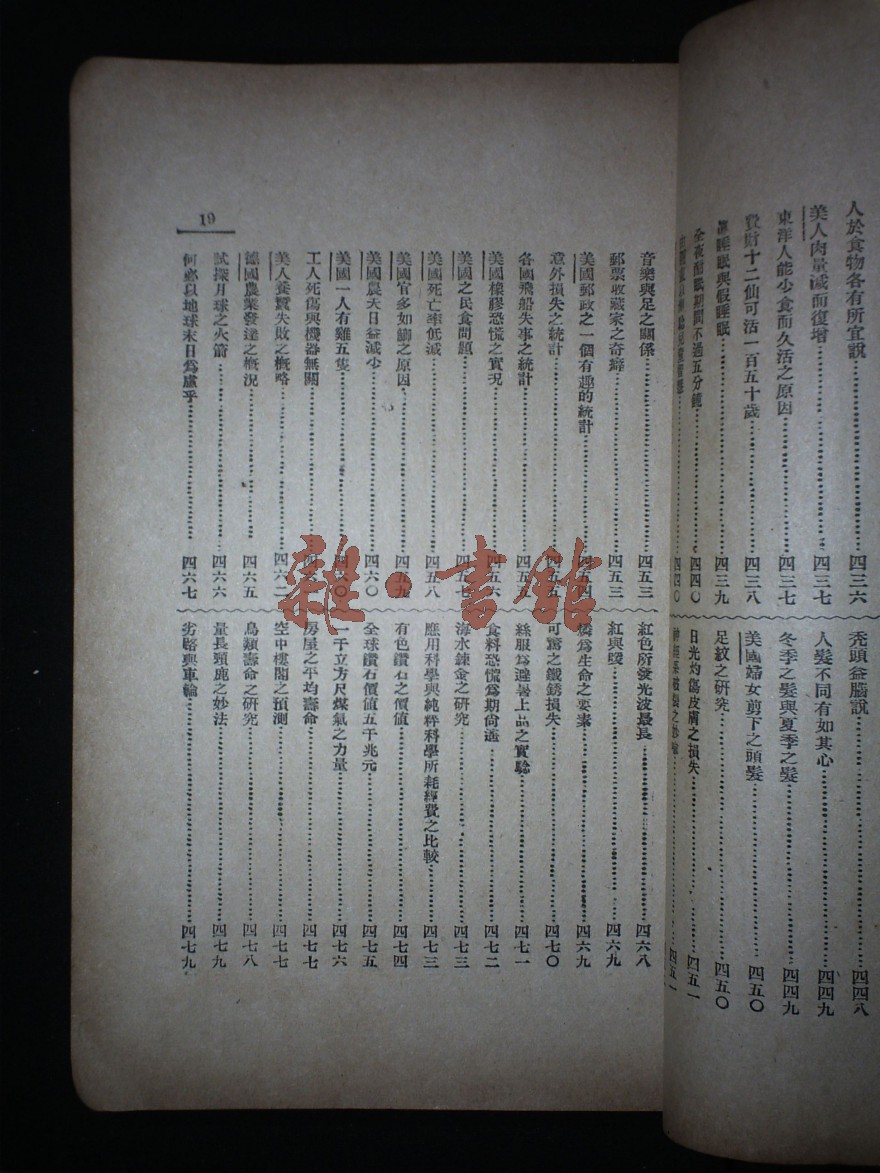 人於食物各有所宜說……四三六
美人肉量減而復增……四三七
東洋人能少食而久活之原因……四三七
費財十二仙可活一百五十歲……四三八
睡眠與假睡眠……四三九
全夜酣眠期間不過五分鐘……四四〇
四四〇
禿頭益腦說……四四八
人髮不同有如其心……四四九
冬季之髮與夏季之髮……四四九
美國婦女剪下之頭髮……四五〇
足紋之研究……四五〇
日光灼傷皮膚之損失……四五一
四五一
音樂與足之關係……四五三
郵票收藏家之奇癖……四五三
美國郵政之一個有趣的統計……四五四
意外損失之統計……四五五
各國飛船失事之統計……四五五
美國橡膠恐慌之實况……四五六
美國之民食問題……四五七
美國死亡率低減……四五八
美國官多如鯽之原因……四五九
美國農夫日益減少……四六〇
美國一人有雞五隻……四六〇
工人死傷與機器無關……四六
美人養鷰失敗之概略……四六二
德國農業發達之概况……四六五
試探月球之火箭……四六六
何必以地球末日爲慮乎……四六七
紅色所發光波最長……四六八
紅與暖……四六九
燐爲生命之要素……四六九
可驚之鐵銹損失……四七〇
絲服爲避暑上品之實驗……四七一
食料恐慌爲期尚遠……四七二
海水鍊金之研究……四七三
應用科學與純粹科學所耗經費之比較……四七三
有色鑽石之價值……四七四
全球鑽石價値五千兆元……四七五
一千立方尺煤氣之力量……四七六
房屋之平均壽命……四七七
空中樓閣之預測……四七七
鳥類壽命之研究……四七八
量長頸鹿之妙法……四七九
劣路與車輪……四七九
19
雜·書館